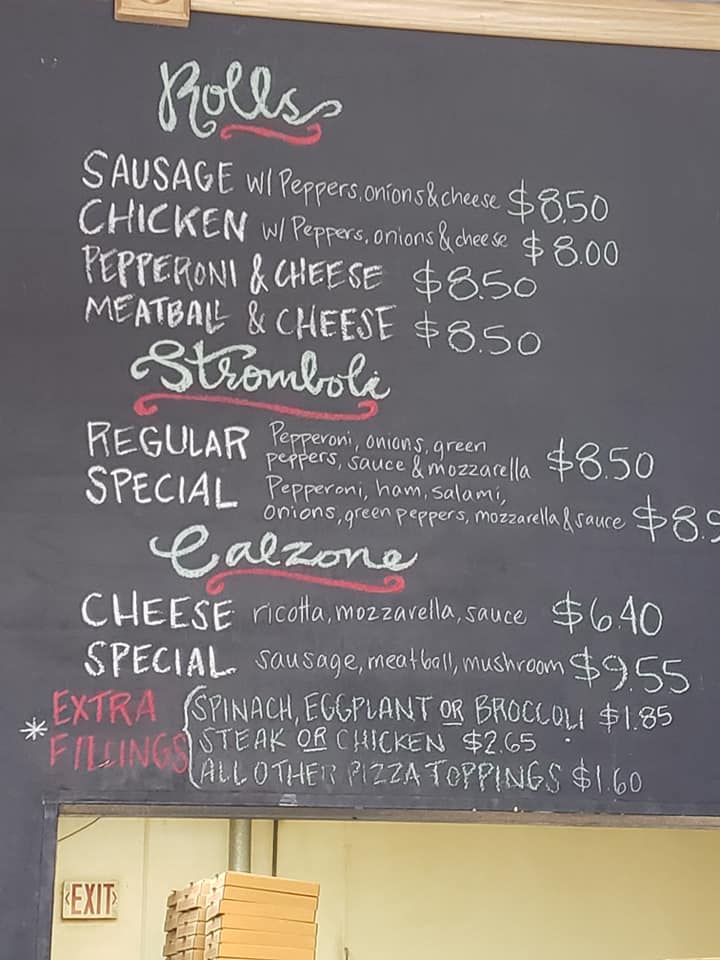 Rolls
SAUSAGE w/ Peppers, onions & cheese $8.50
CHICKEN w/ Peppers, onions & cheese $8.00
PEPPERONI & CHEESE $8.50
MEATBALL & CHEESE $8.50
Stromboli
REGULAR Pepperoni, onions, green
peppers, sauce & mozzarella $8.50
SPECIAL Pepperoni, ham, salami,
onions, green peppers, mozzarella & sauce $8.9
Calzone
CHEESE ricotta, mozzarella, sauce $6.40
SPECIAL sausage, meatball, mushroom $9.55
* EXTRA FILLINGS
SPINACH, EGGPLANT OR BROCCOLI $1.85
STEAK OR CHICKEN $2.65
ALL OTHER PIZZA TOPPINGS $1.60
EXIT